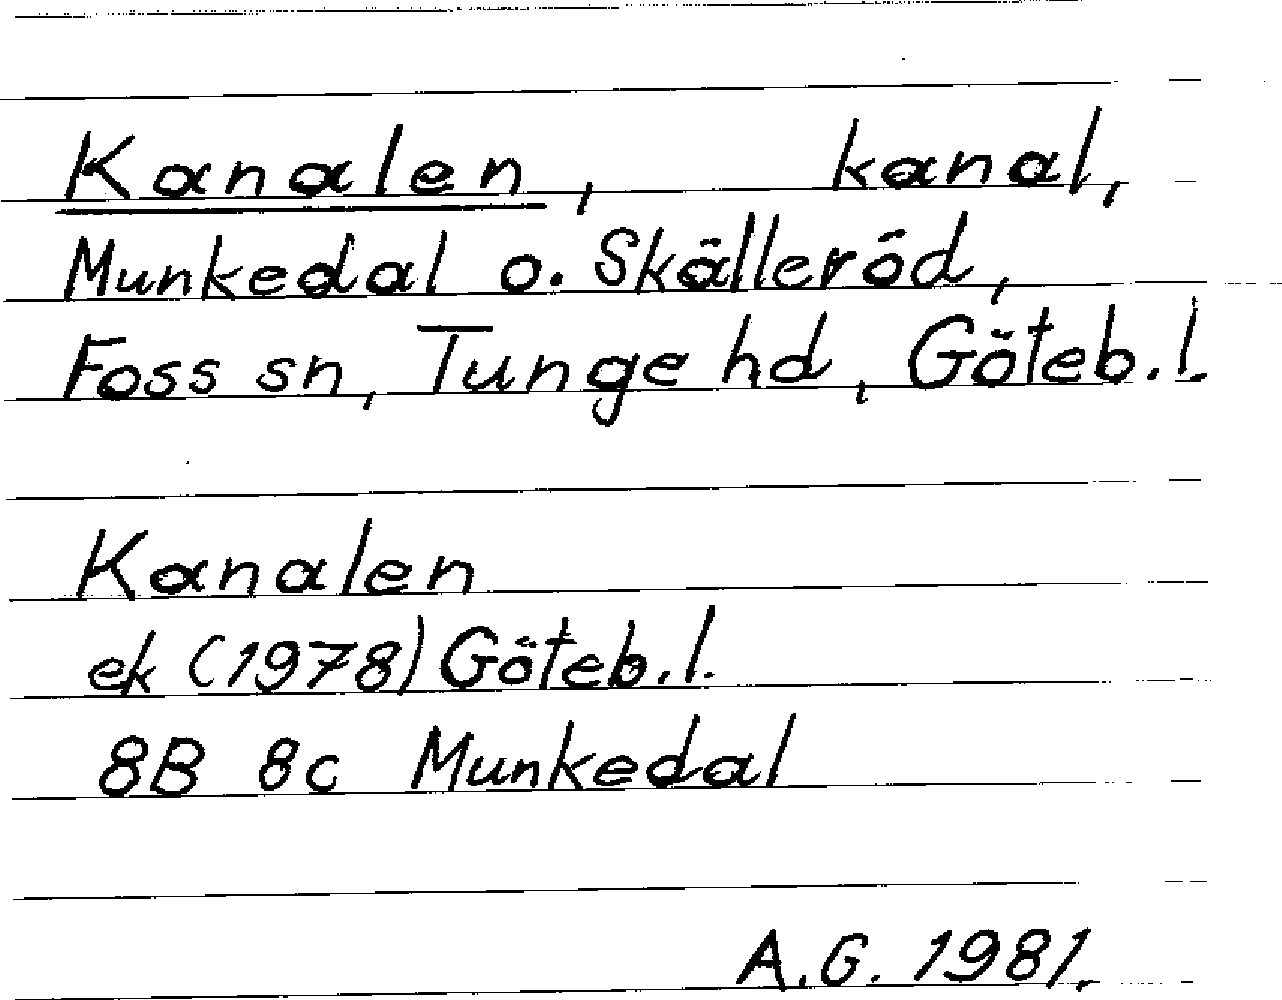 Kanalen, kanal,
Munkedal o. Skälleröd,
Foss sn, Tunge hd, Göteb.l.
Kanalen
ek (1978) Göteb.l.
8B 8c Munkedal
A.G. 1981.